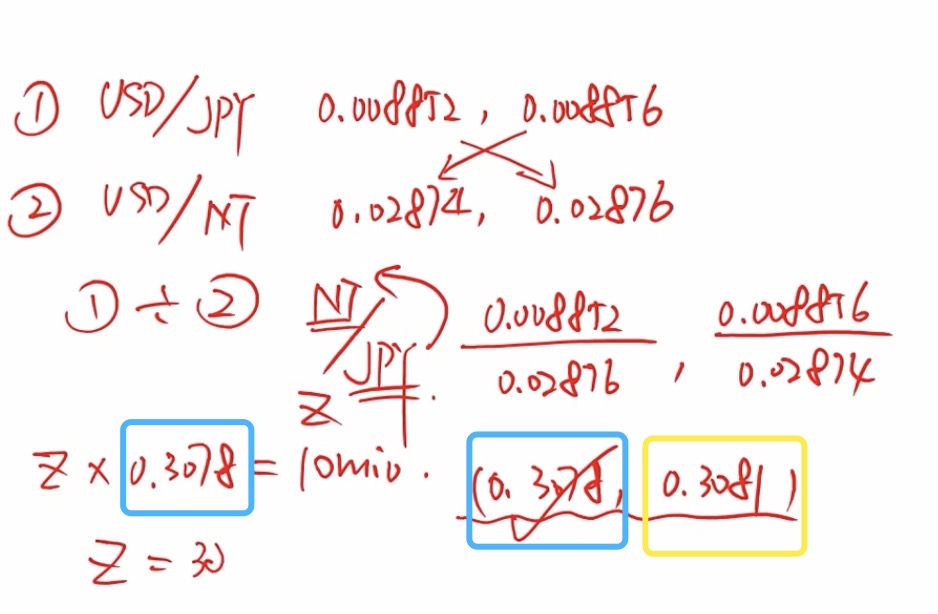 ① USD/JPY 0.008852, 0.008856
② USD/NT 0.02874, 0.02876
① ÷ ② NT/JPY 0.008852/0.02876, 0.008856/0.02874
Z
Z × 0.3078 = 10mio. (0.3078, 0.3081)
Z = 30